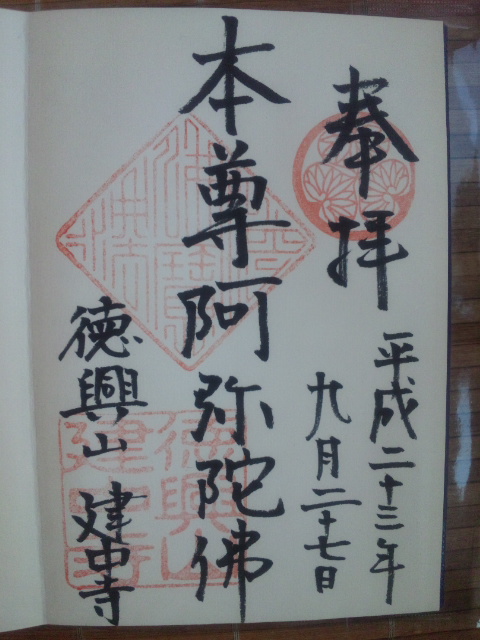 奉拝
平成二十三年
九月二十七日
本尊阿弥陀佛
徳興山 建中寺
徳興山
建中寺